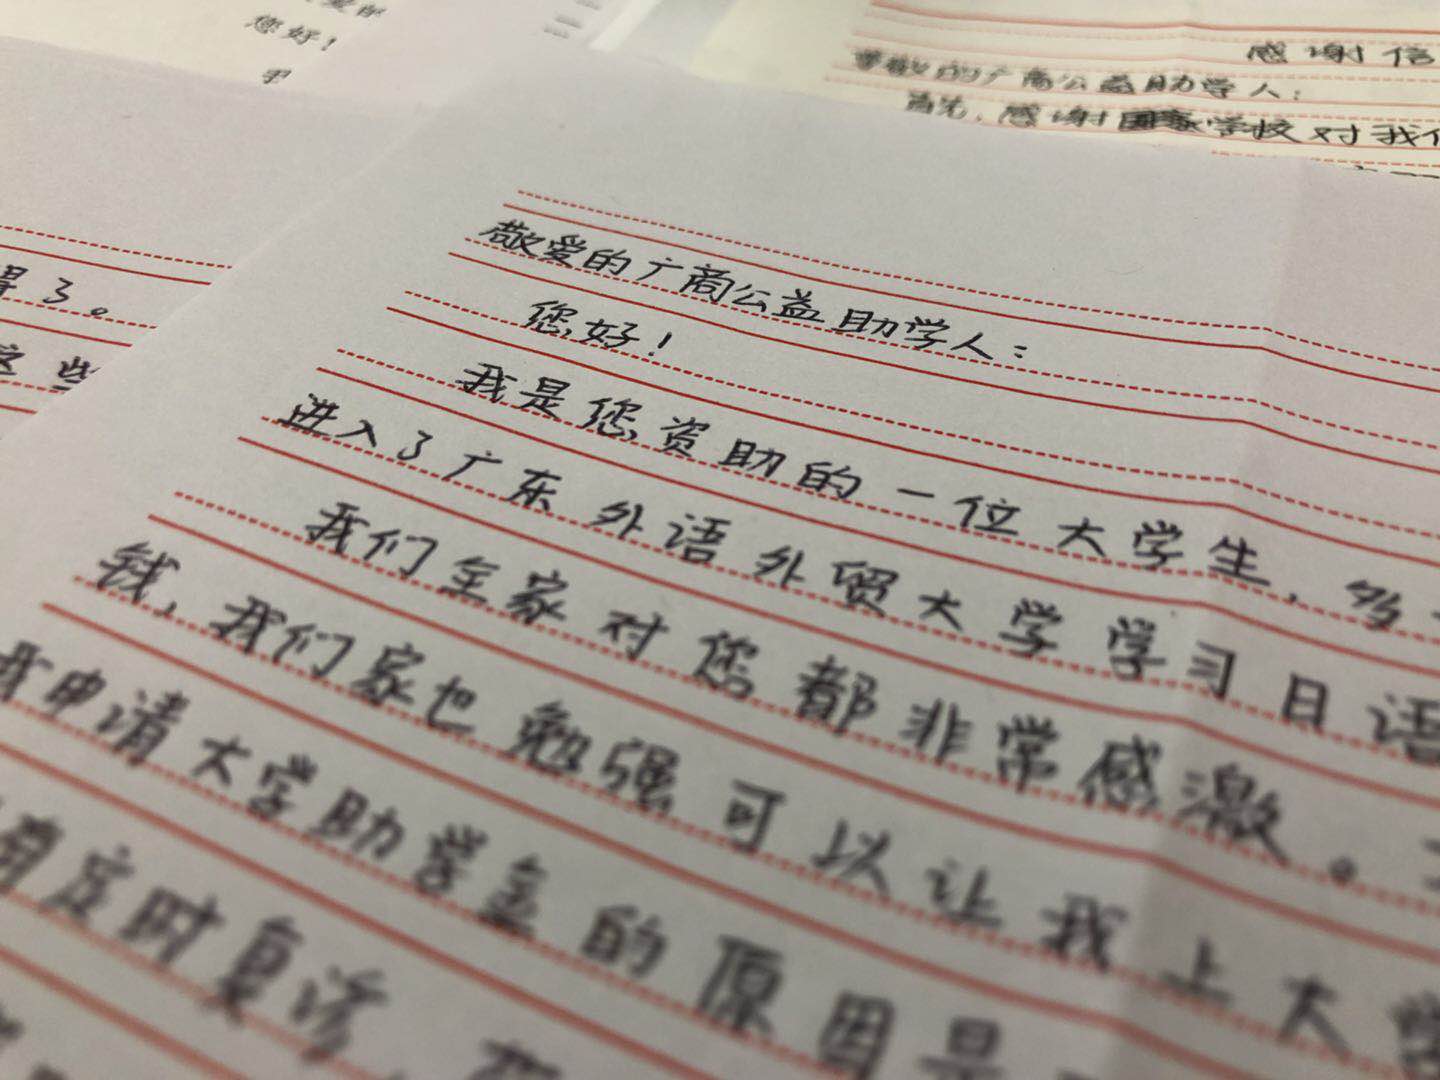 您好!
感谢信
尊敬的广商公益助学人:
首先,感谢学校对我们
得了。
这些
敬爱的广商公益助学人:
您好!
我是您资助的一位大学生,多
进入了广东外语外贸大学学习日语
我们全家对您都非常感激。
钱,我们家也勉强可以让我上大学
我申请大学助学金的原因是
有定时复诊,